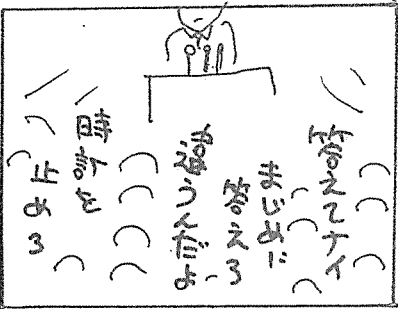 答えてナイ
まじめに
答えろ
違うんだよ〜
時計を
止めろ